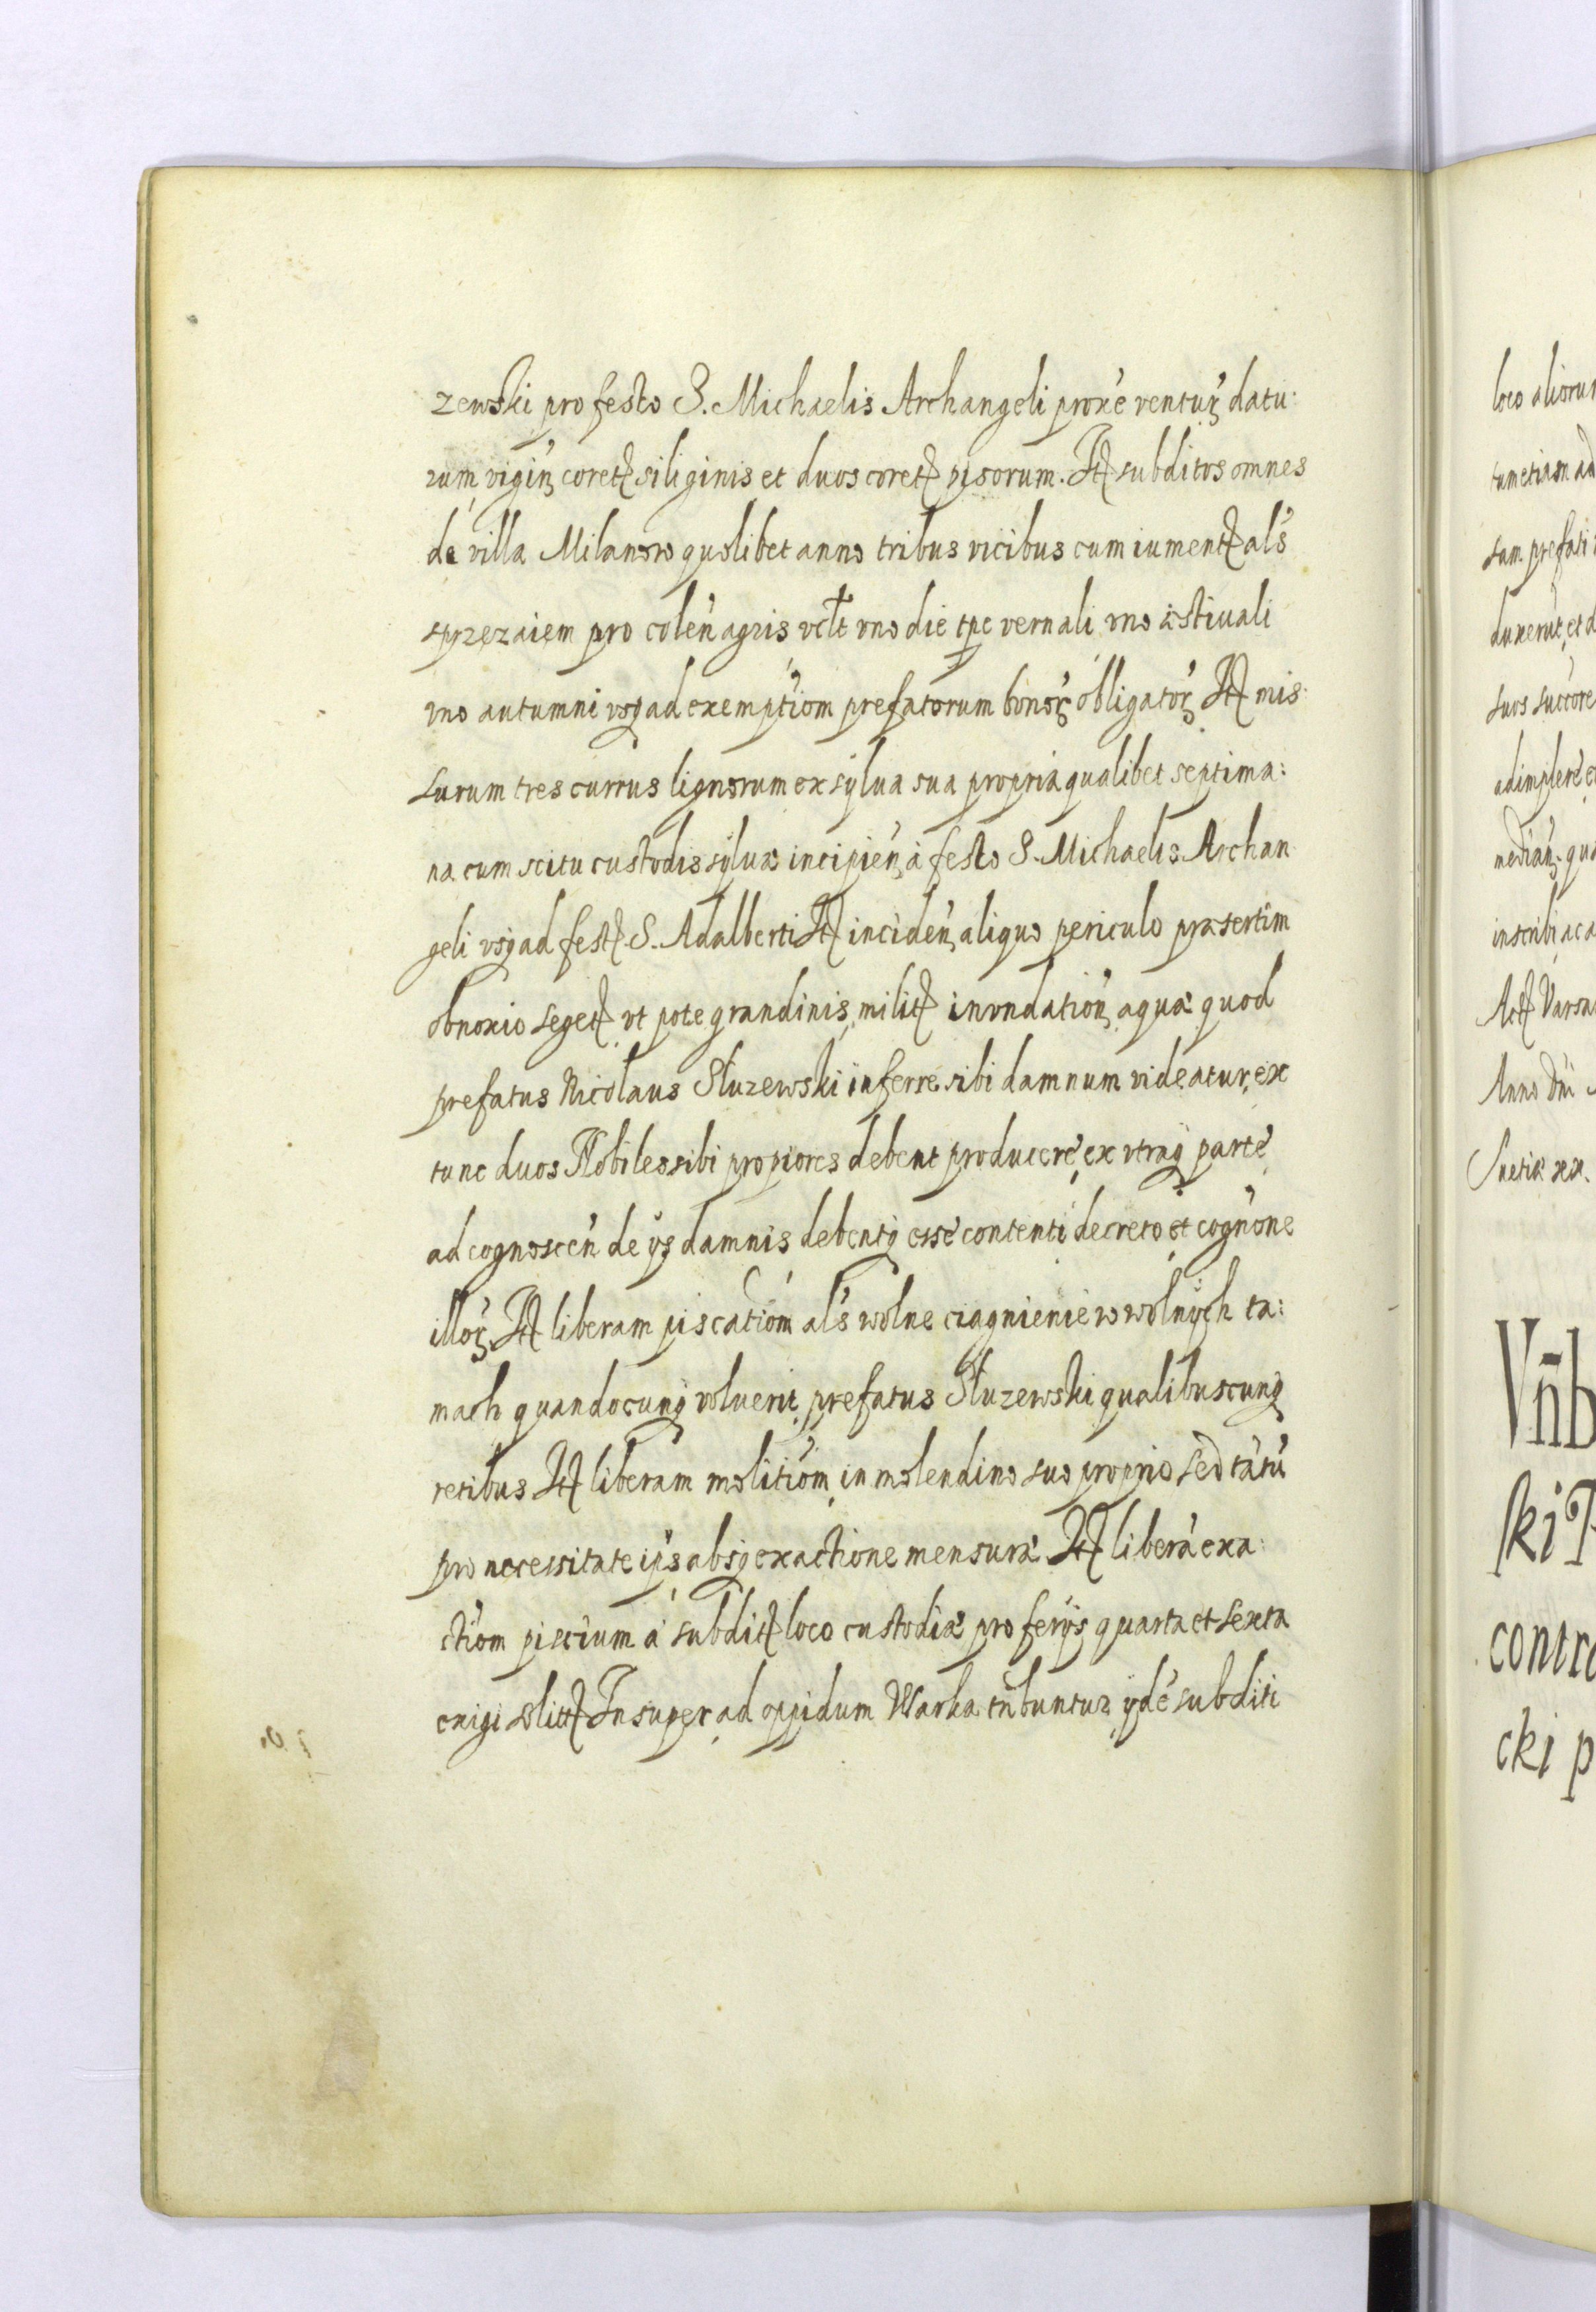 zewski pro festo S. Michaelis Archangeli proxė venturꝫ datu:
rum viginꝫ coretꝭ siliginis et duos coretꝭ pisorum. Itꝭ subditos omnes
de villa Milanow quolibet anno tribus vicibus cum iumentꝭ als
sprzezaiem pro colen agris vclt vno die tpe vernali vno æstiuali
vno autumni vsqꝫ ad exemptiom prefatorum bonoꝝ obligatoꝝ Itꝭ mis:
surum tres currus lignorum ex sylua sua propria qualibet septima:
na cum scitu custodis syluæ incipienꝫ à festo S. Michaelis Archan
geli vsqꝫ ad festꝭ S. Adalberti Itꝭ incidenꝫ aliquo periculo præsertim
obnoxio segetꝭ vt pote grandinis, militꝭ invndationꝫ aquæ quod
prefatus Nicolaus Służewski inferre sibi damnum videatur, ex
tunc duos Nobiles sibi propiores debent producere, ex vtraqꝫ parte
ad cognoscen de ijs damnis debentqꝫ esse contenti decreto et cognone
illoꝝ Itꝭ liberam piscatiom als wolne ciagnienie w wolnych ta:
mach quandocunqꝫ voluerit prefatus Służewski qualibuscunqꝫ
retibus Itꝭ liberam molitiom in molendino suo proprio sed tātū
pro necessitate ips absqꝫ exactione mensuræ Itꝭ liberā exa:
ctiom piscium à subditꝭ loco custodiæ pro ferijs quarta et sexta
exigi solittꝭ Insuper ad oppidum Warka tnbuntur ijdē subditi
loco aliorum
tum etiam ad
sam prefati
duxerūt, et
suos succore
adimplere
medianꝫ qua
inscribi ac a
Actꝭ Varsa
Anno Dni
Suetiæ
Vnb
ski
contra
cki p